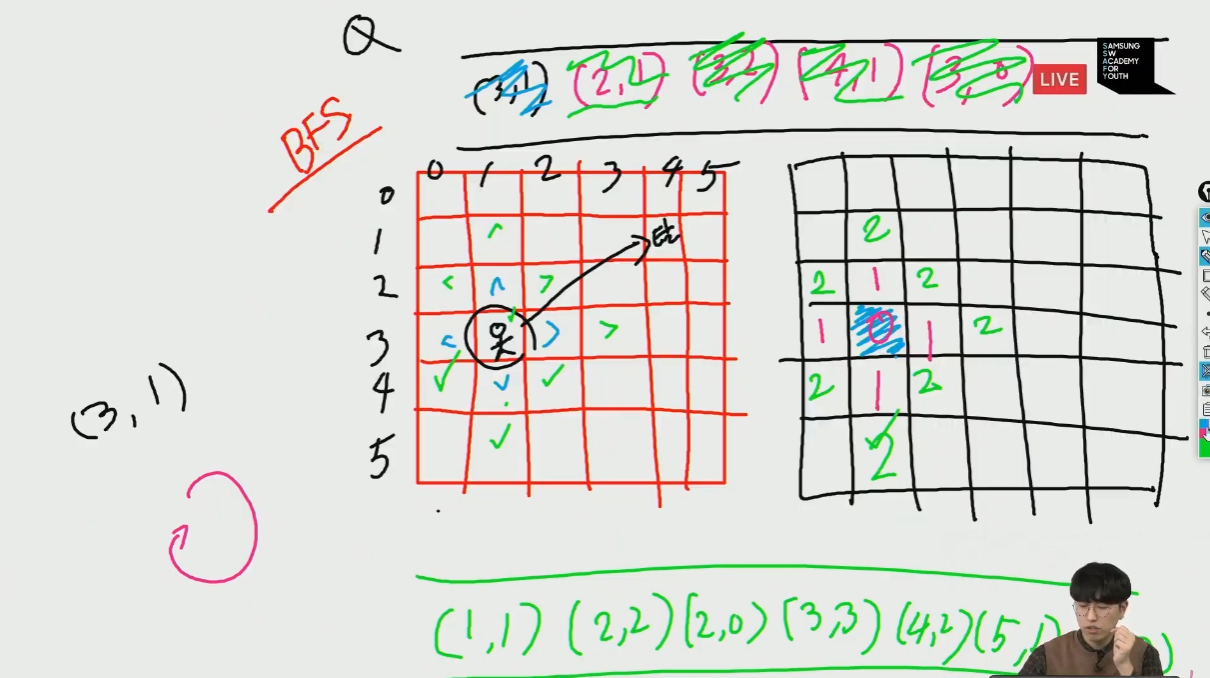 Q
(3,1) (2,1) (3,2) (4,1) (3,0)
LIVE
SAMSUNG
SW
ACADEMY
FOR
YOUTH
BFS
0 1 2 3 4 5
0
1
2
3
4
5
탈
(3,1)
2
2 1 2
1 0 1 2
2 1 2
2
(1,1) (2,2) (2,0) (3,3) (4,2) (5,1)